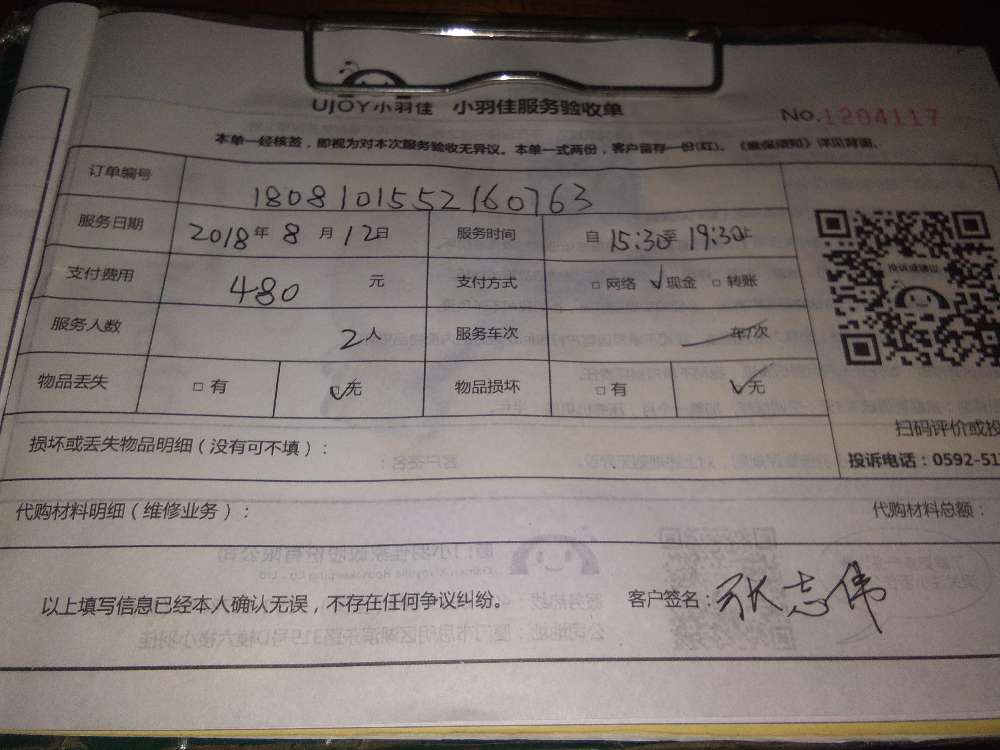 UJOY小羽佳 小羽佳服务验收单 No.1204117
本单一经核签，即视为对本次服务验收无异议。本单一式两份，客户留存一份(红)。《维保须知》详见背面。
订单编号 1808101552160763
服务日期 2018年8月12日 服务时间 自15:30至19:30止
支付费用 480元 支付方式 □网络 √现金 □转账
投诉或建议
服务人数 2人 服务车次 车/次
物品丢失 □有 √无 物品损坏 □有 √无
扫码评价或投
损坏或丢失物品明细（没有可不填）：
投诉电话：0592-51
代购材料明细（维修业务）： 代购材料总额：
以上填写信息已经本人确认无误，不存在任何争议纠纷。 客户签名：张志伟